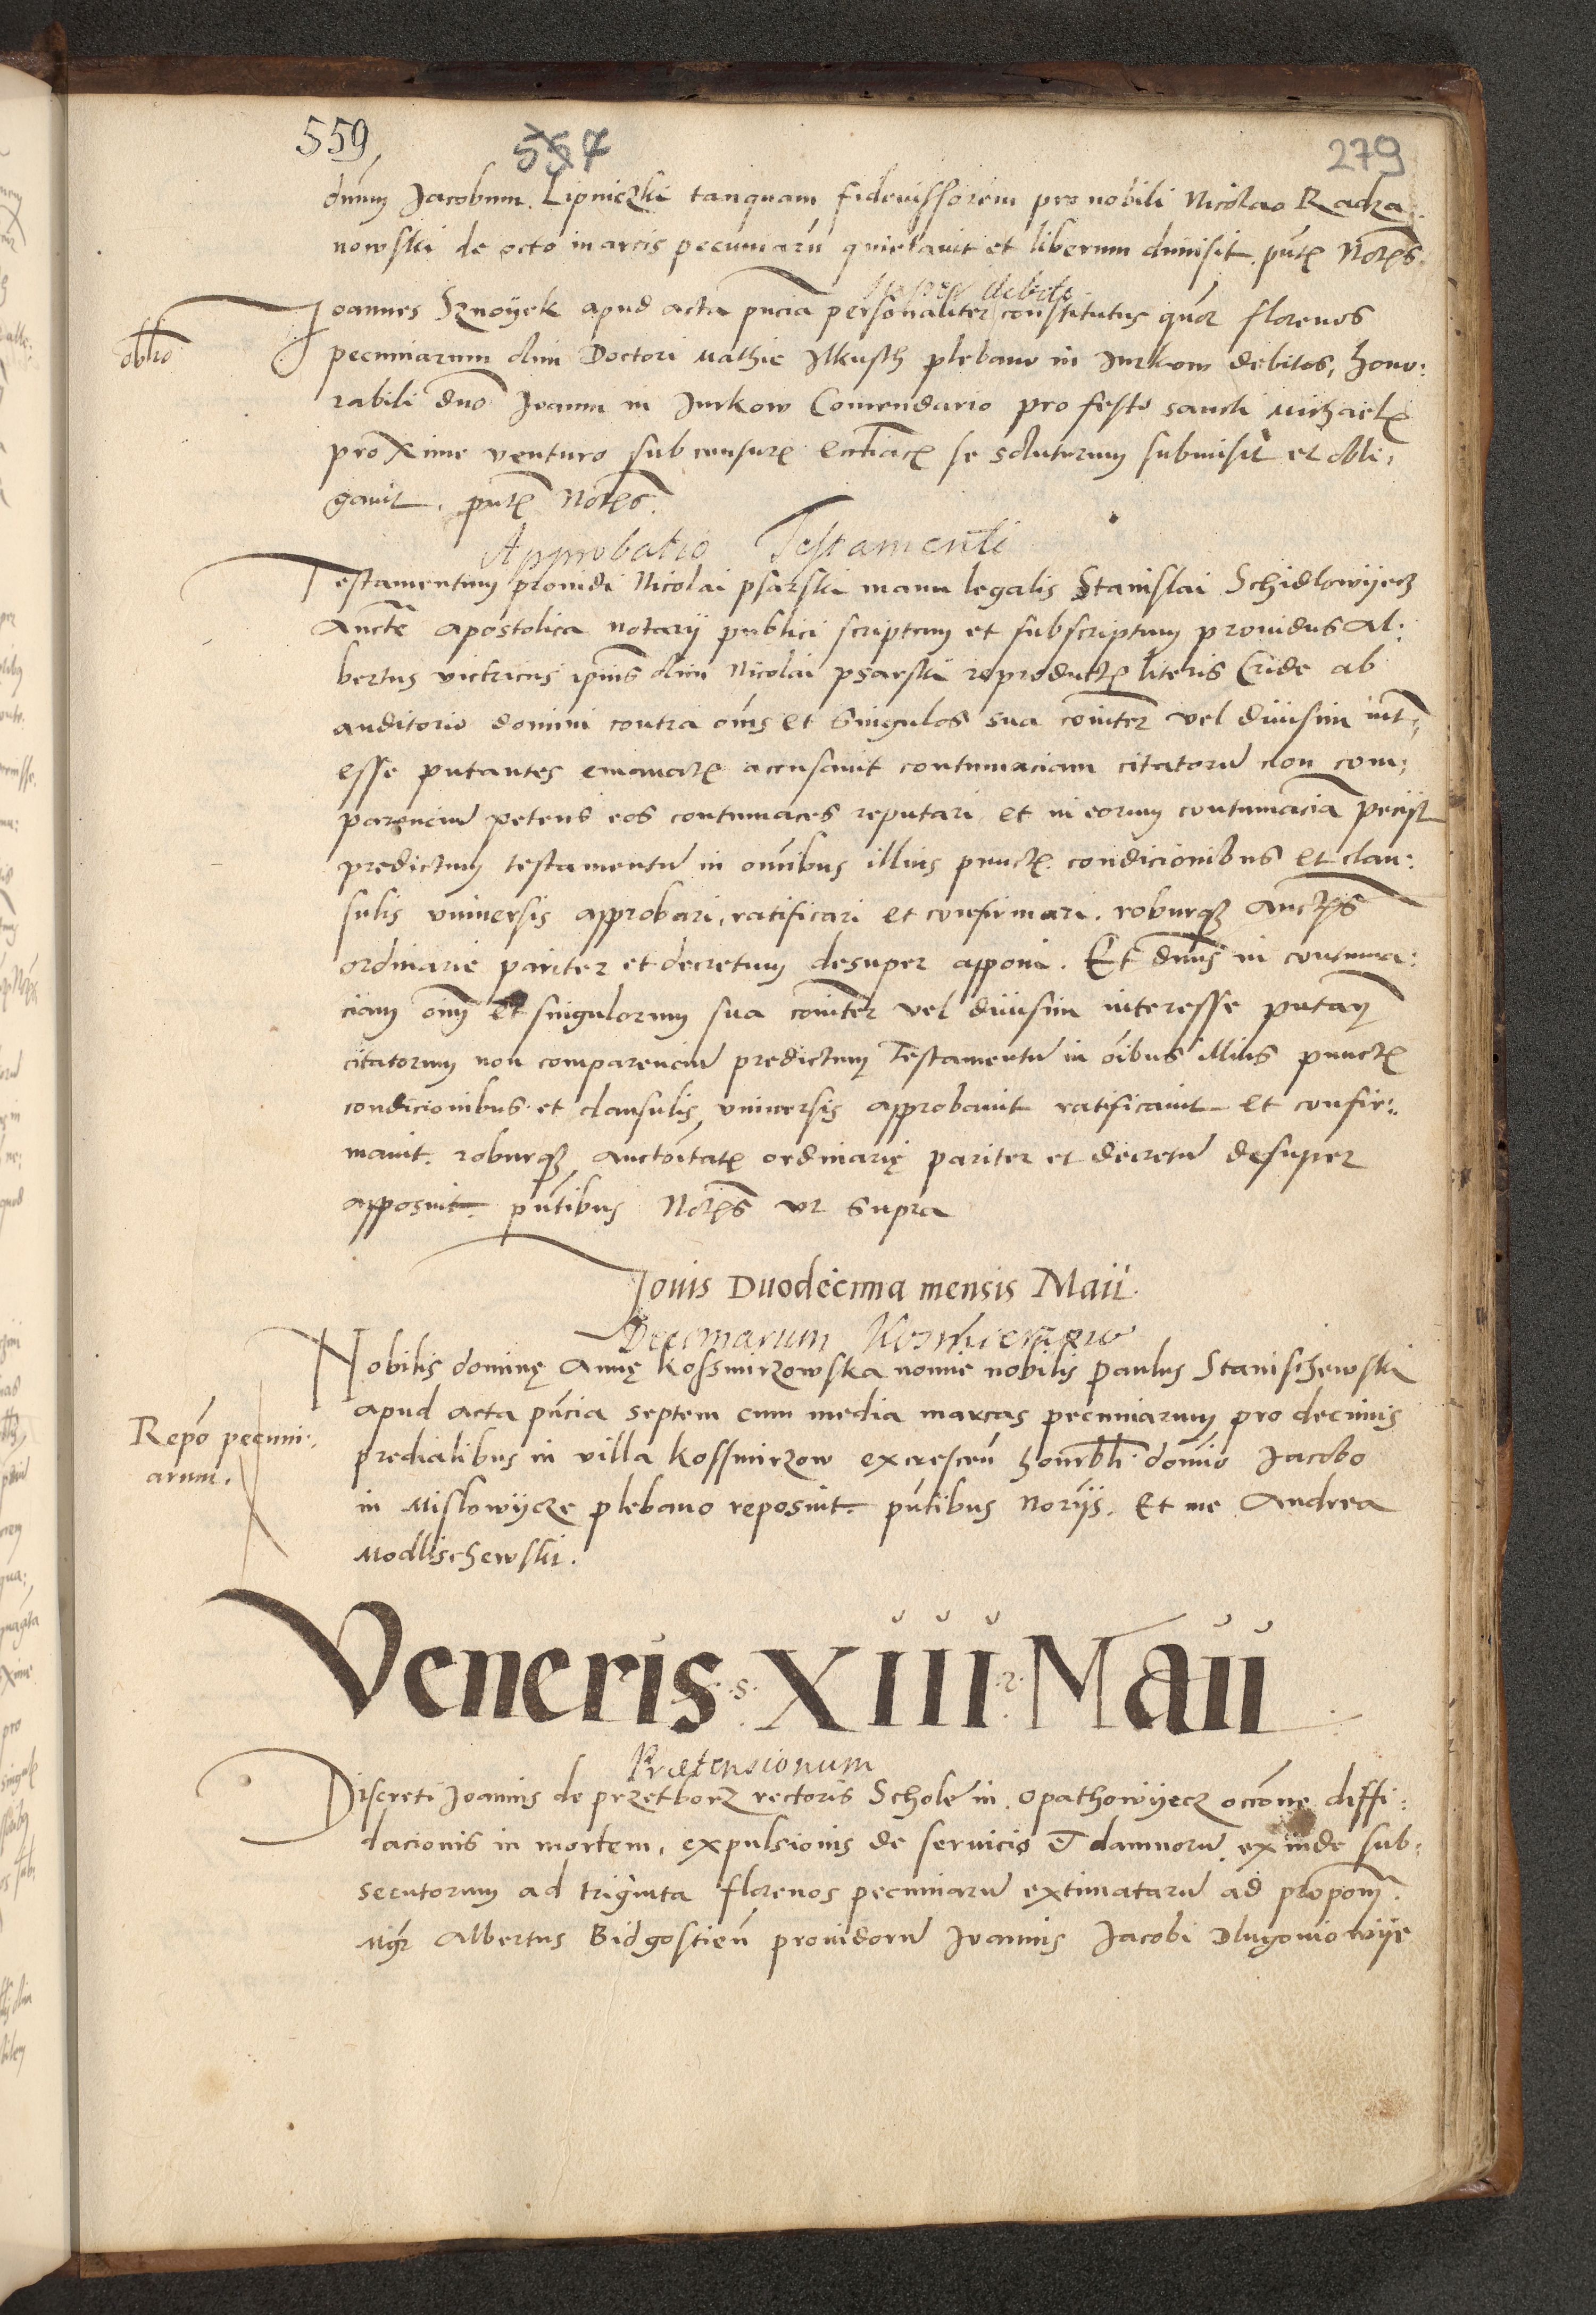 559
557
279
dnum Jacobum Lipniczki tanquam fideiussorem pro nobili Nicolao Radza
nowski de octo marcis pecuniarum quietavit et liberum dimisit. pnte Notrs
super debito
Joannes Sznoyek apud acta pncia personaliter constitutus quor florenos
oblio
pecuniarum olim Doctori Mathie Ilkusch plebano in Jurkow debitos, hono:
rabili dno Joanni in Jurkow Comendario pro festo sancti Michaelis
proxime venturo sub censuris eccliacis se soluturum submisit et obli:
gavit. pnte Notrs.
Approbatio Testamenti
Testamentum providi Nicolai psarski manu legalis Stanislai Schidlowyecz
Aucte apostolica notarij publici scriptum et subscriptum providus Al:
bertus victricus ipsius olim Nicolai psarski reproductis literis Cride ab
auditorio domini contra oms et Singulos sua comiter vel divisim int:
esse putantes emanatis accusavit contumaciam citatoru non com:
parenciu petens eos contumaces reputari et in eorum contumacia peciit
predictum testamentu in omibus illius punctis condicionibus et clau:
sulis universis approbari, ratificari et confirmari. roburq auctis
ordinarie pariter et decretum desuper apponi. Et dnus in contuma:
ciam oim et singulorum sua comiter vel divisim interesse putan
citatorum non comparenciu predictum Testamentu in oibus illius punctis
condicionibus et clausulis universis approbavit ratificavit et confir:
mavit. roburq auctoitatis ordinarię pariter et decretu desuper
apposuit. pntibus Notrs ut supra
Jovis Duodecima mensis Maii.
Decimarum
Nobilis dominę Annę Kossmirzowska nomine nobilis Paulus Stanischewski
apud acta pncia septem cum media marcas pecuniarum pro decimis
Repo pecuni:
arum.
predialibus in villa Kossmirzow excrescen honorbli domino Jacobo
in Mislowycze plebano reposuit. pntibus Noriis. Et me Andrea
Modlischewski.
Veneris XIII Maii
Prætensionum
Discreti Joannis de przetborz rectoris Schole in Opathowyecz occone diffi:
dacionis in mortem, expulsionis de servicio et damnoru exinde sub:
secutorum ad triginta florenos pecuniaru extimataru ad propom
Mgr Albertus Bidgostien providoru Joannis Jacobi Dlugoniowye